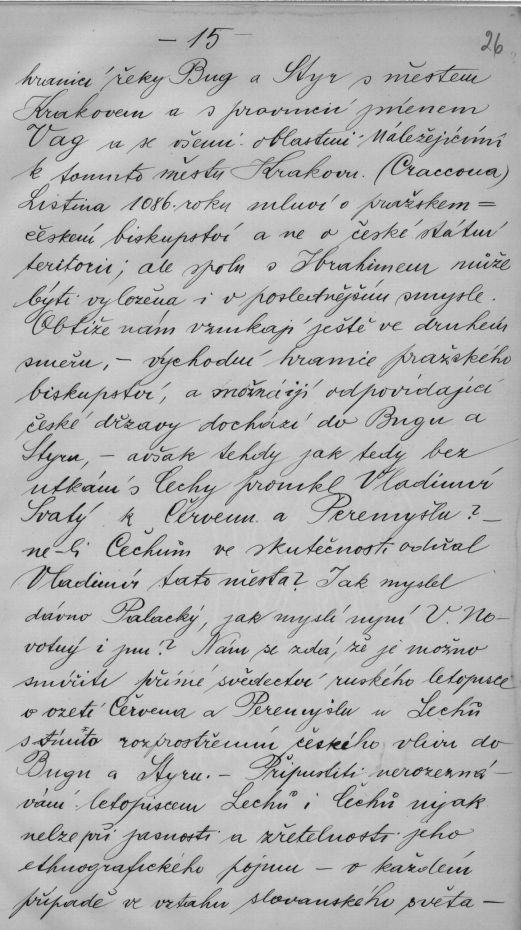 — 15 —
26
hranicí řeky Bug a Styr s městem
Krakovem a s provincií jménem
Vag a se všemi oblastmi náležejícími
k tomuto městu Krakovu. (Craccoua)
Listina 1086. roku mluví o pražském=
českém biskupství a ne o české státní
teritorii; ale spolu s Ibrahimem může
býti vyložena i v poslednějším smysle.
Obtíže nám vznikají ještě ve druhém
směru, – východní hranice pražského
biskupství, a možná i jí odpovídající
české državy dochází do Bugu a
Styru, – avšak tehdy jak tedy bez
utkání s Čechy pronikl Vladimír
Svatý k Červenu a Peremyšlu? –
ne-li Čechům ve skutečnosti odňal
Vladimír tato města? Jak myslel
dávno Palacký, jak myslí nyní V. No-
votný i jiní? Nám se zdá, že je možno
smířiti přímé svědectví ruského letopisce
o vzetí Červena a Peremyšlu u Lechů
s tímto rozprostřením českého vlivu do
Bugu a Styru. – Připustiti nerozezná-
vání letopiscem Lechů i Čechů nijak
nelze při jasnosti a zřetelnosti jeho
ethnografického pojmu – v každém
případě ve vztahu slovanského světa –